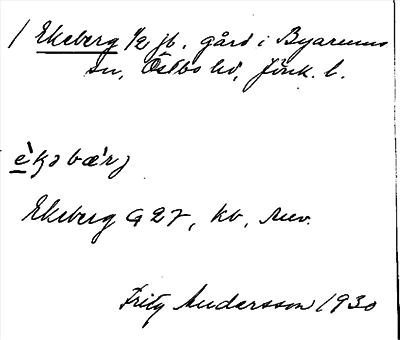 / Ekeberg 1/2 jb. gård i Byarums
sn, Östbo hd, Jönk. l.
Ekeberg G 27, kb,
Fritz Andersson 1930